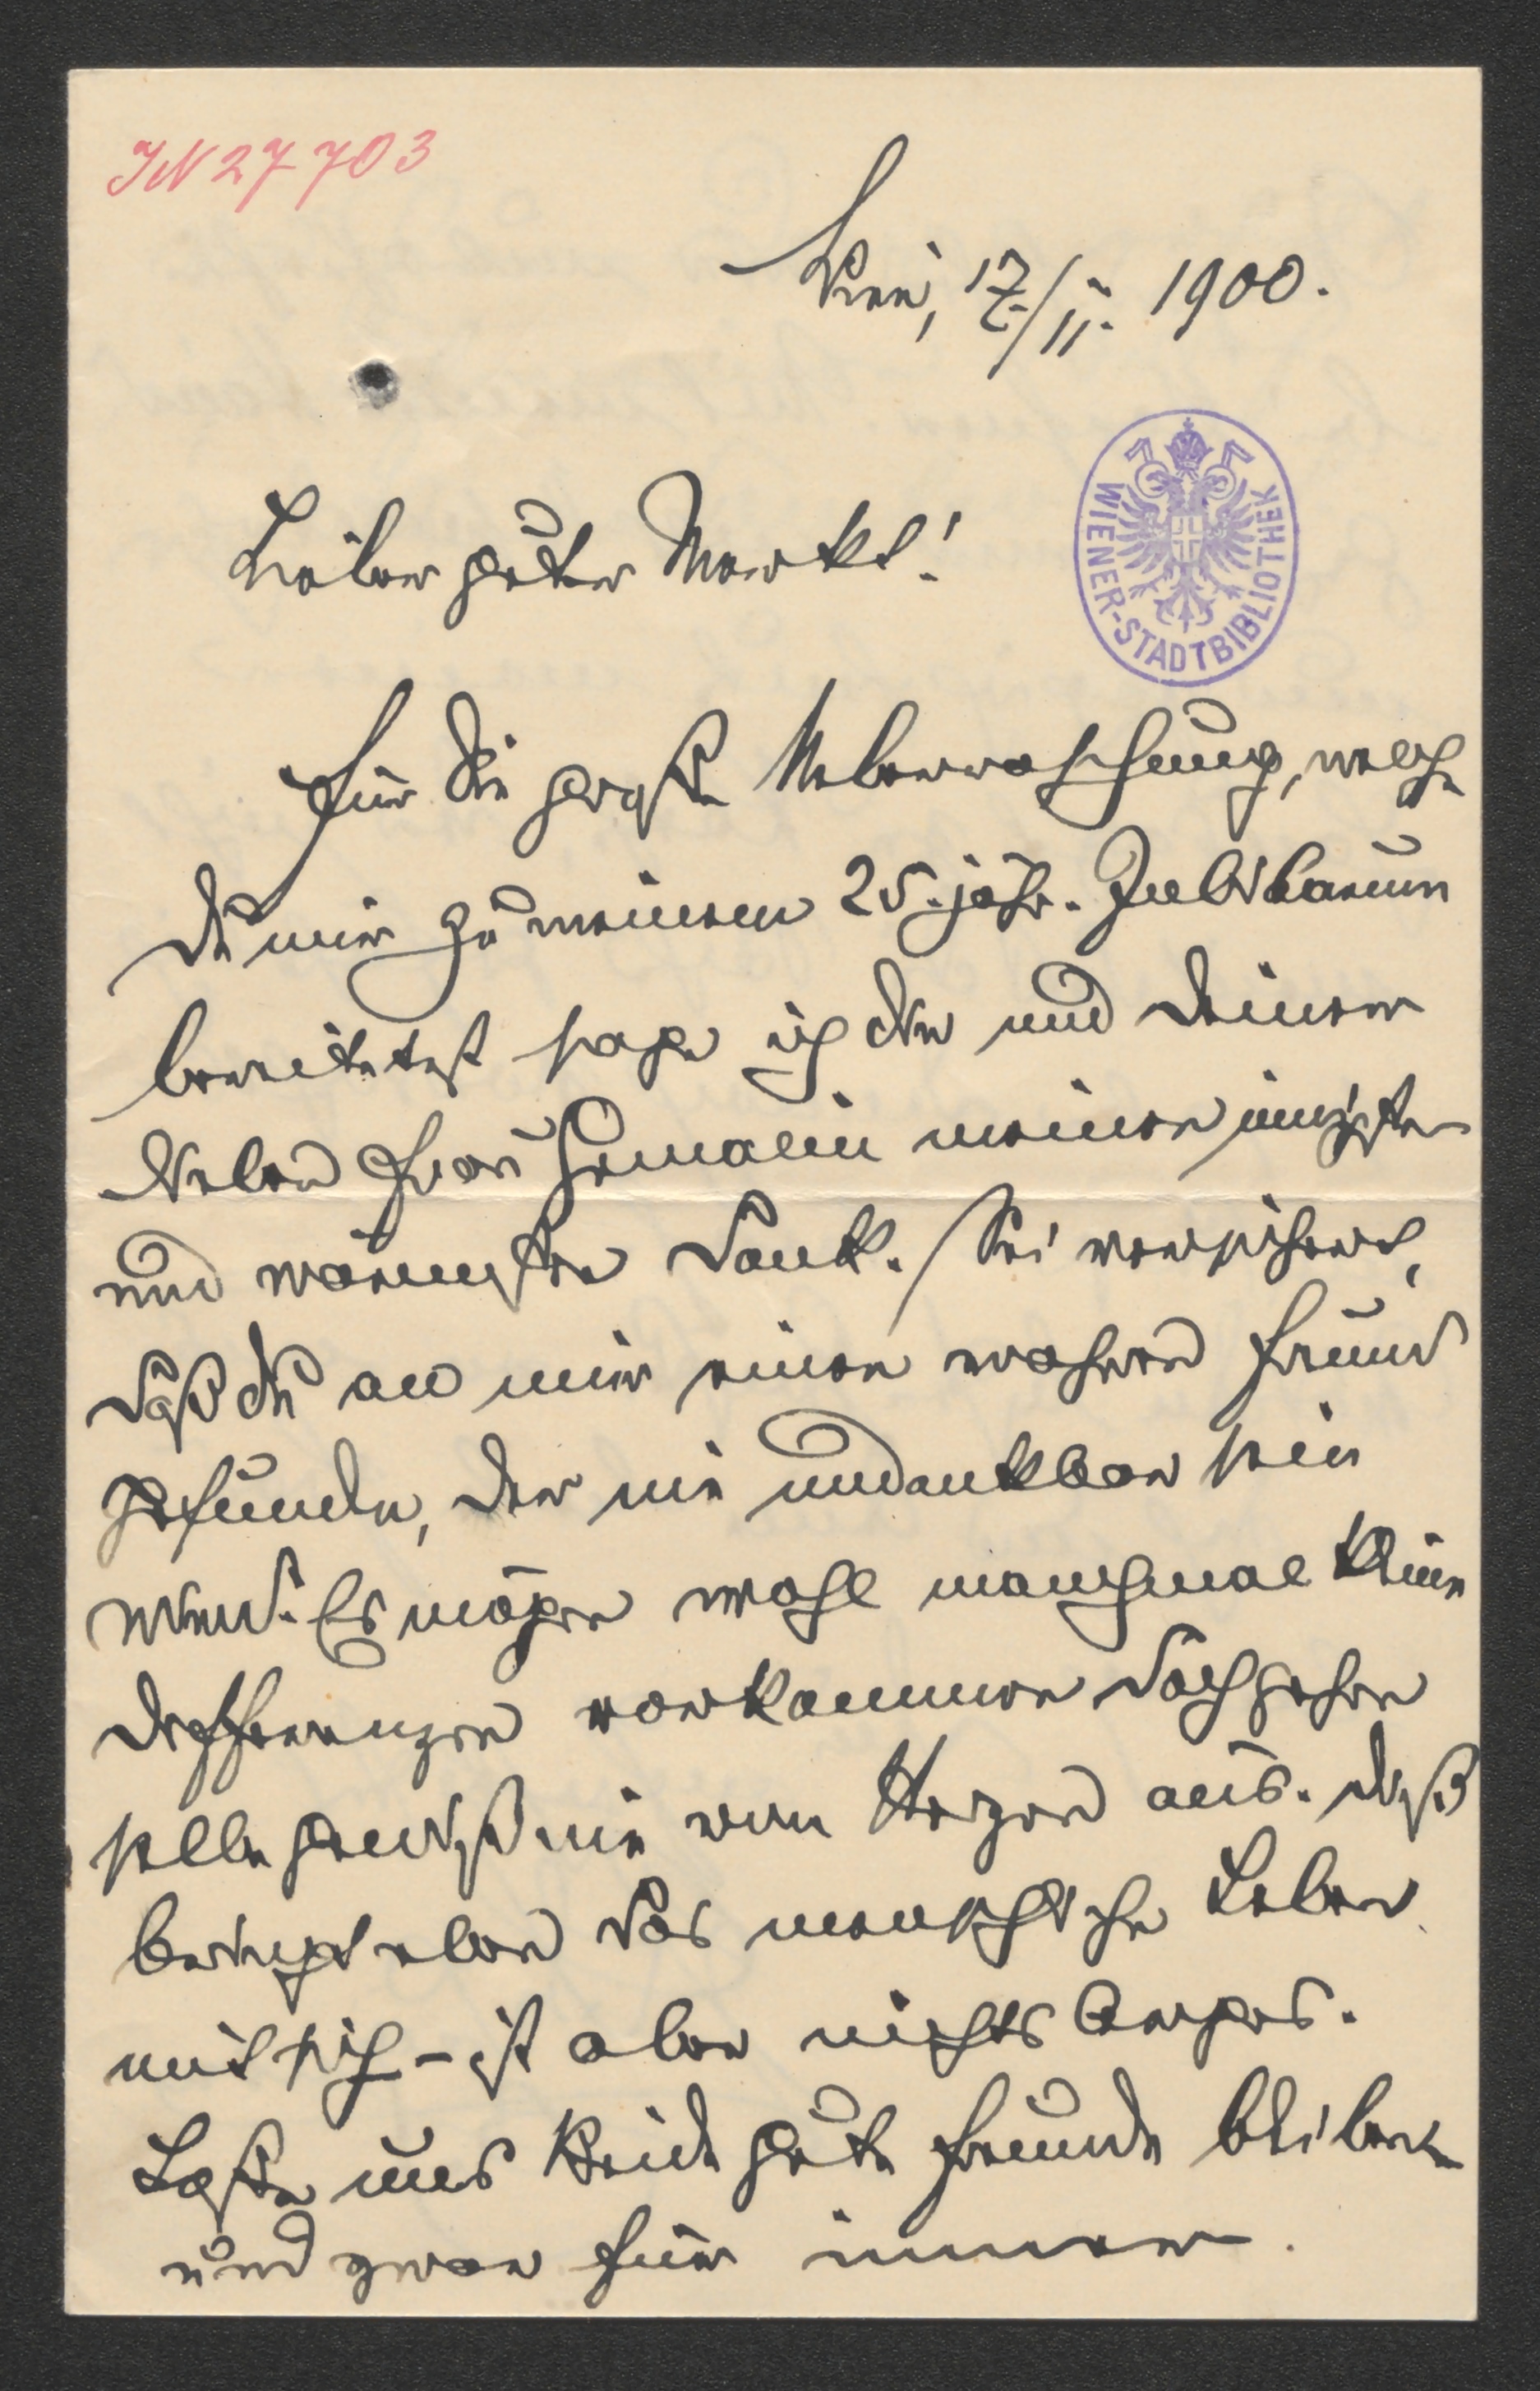 IN 27703
Wien, 17./II. 1900.
WIENER-STADTBIBLIOTHEK
Lieber guter Merkt!
Für die große Ueberraschung, welche
Du mir zu meinem 25. jähr. Jubilaeum
bereitetest sage ich Dir und Deiner
lieben Frau Gemalin meinen innigsten
und wärmsten Dank. Sei versichert,
daß Du an mir einen wahren Freund
gefunden, der nie undankbar sein
wird. Es mögen wohl manchmal kleine
Differenzen vorkommen doch gehen
selbe gewiß nie vom Herzen aus. Dieß
bringt eben das menschliche Leben
mit sich – ist aber nichts Arges.
Lasse uns Beide gute Freunde bleiben
und zwar für immer.